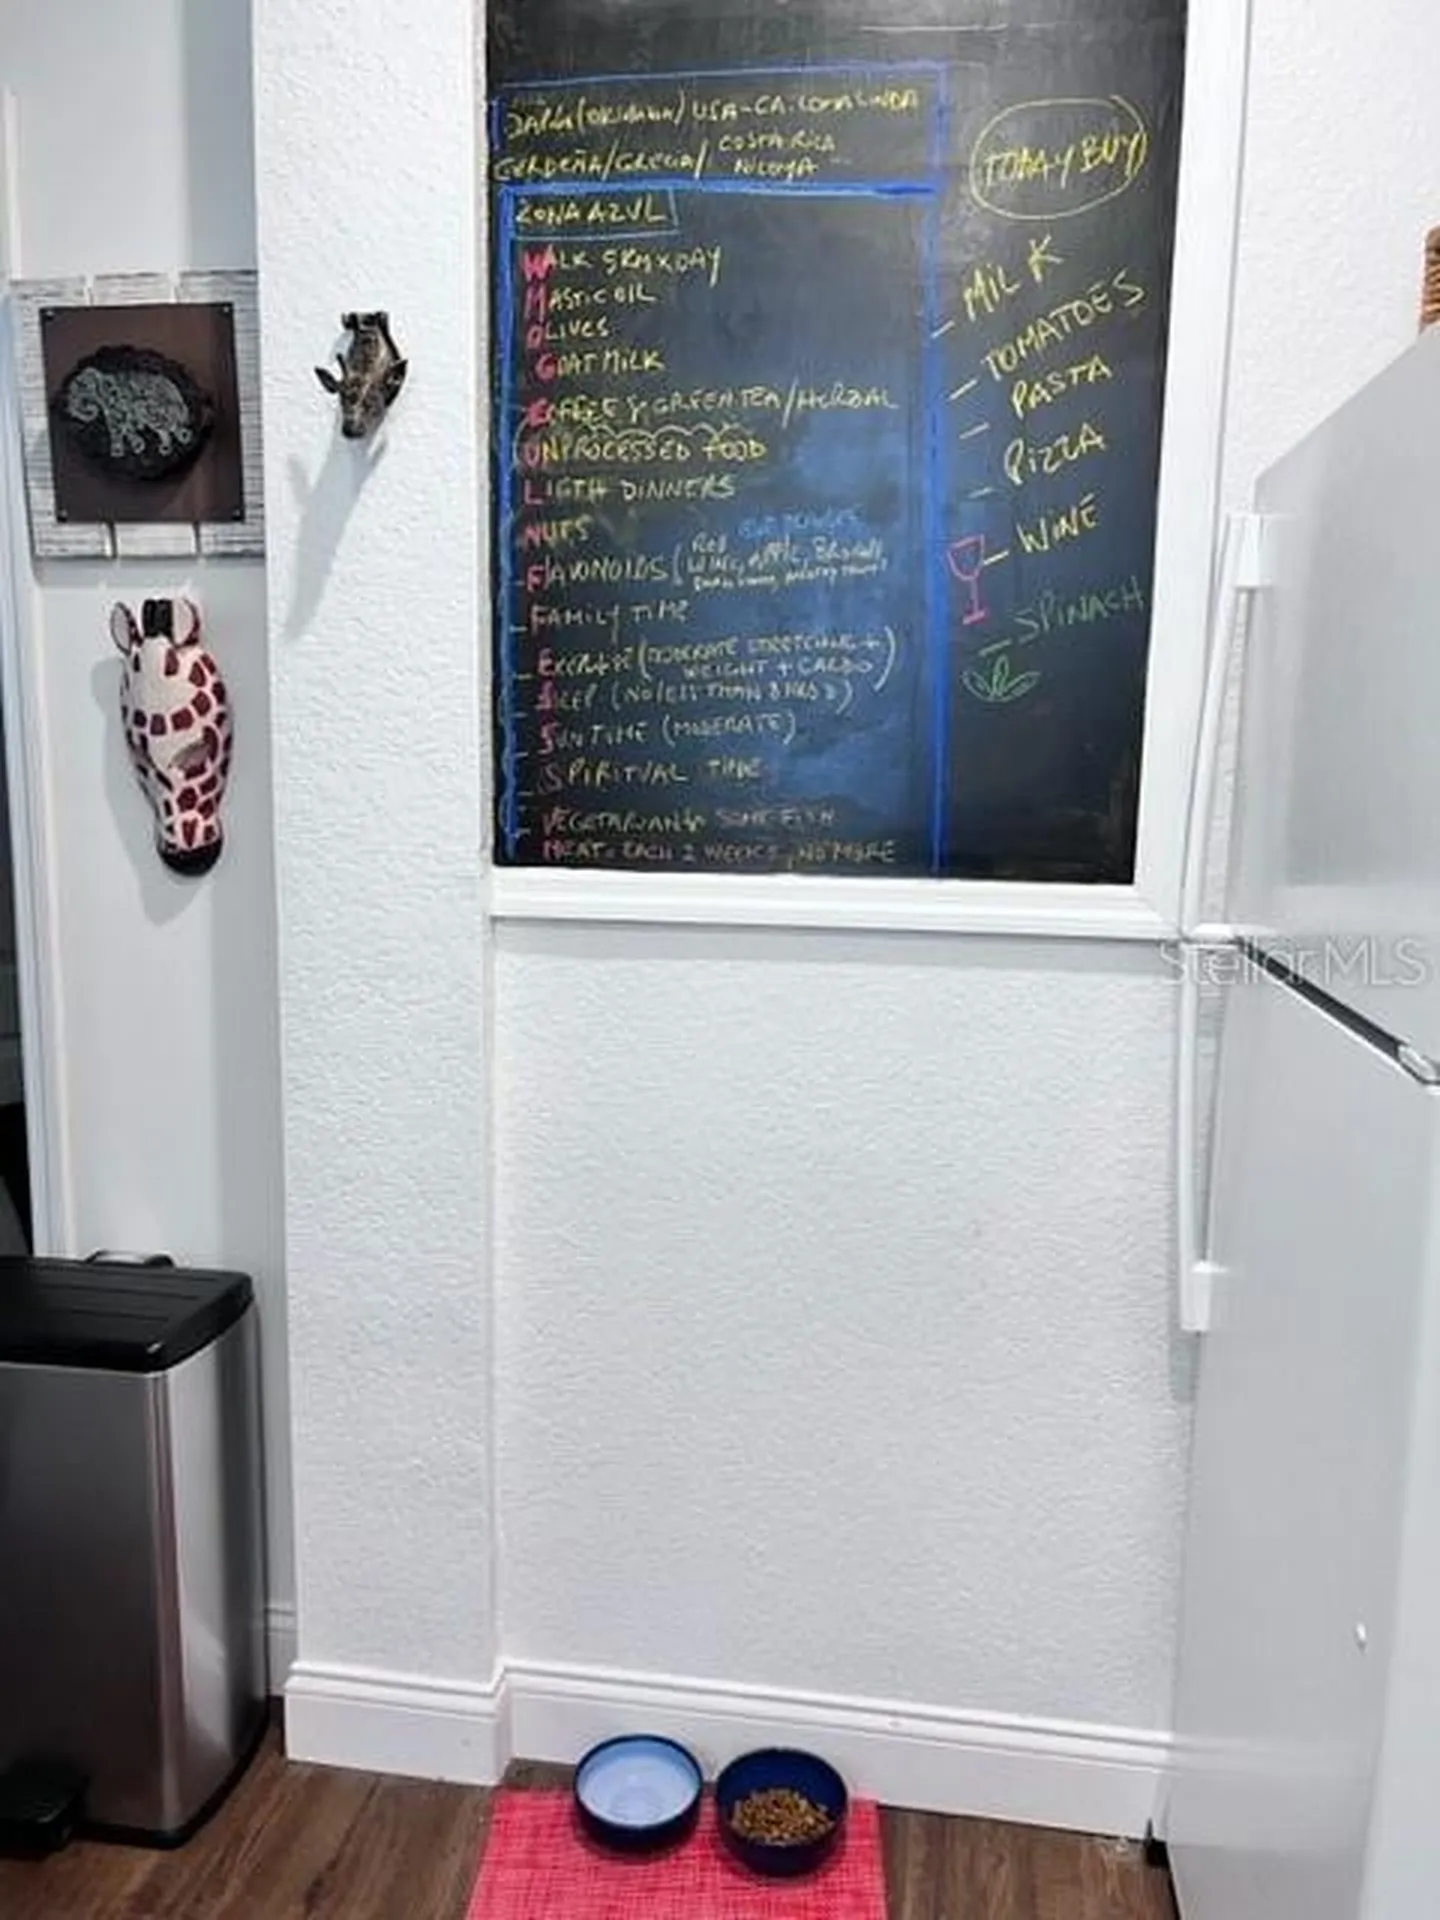 JAPÓN (OKINAWA) / USA-CA. LOMA LINDA
CERDEÑA/GRECIA/ COSTA RICA
NICOYA
ZONA AZUL
WALK 5KMXDAY
MASTIC OIL
OLIVES
GOAT MILK
COFFEE y GREEN TEA/HERBAL
UNPROCESSED FOOD
LIGTH DINNERS
NUTS
FLAVONOIDS (RED WINE, APPLE,
FAMILY TIME
EXERCISE (MODERATE STRETCHING +
WEIGHT + CARDIO)
SLEEP (NO LESS THAN 8 HRS)
SUN TIME (MODERATE)
SPIRITUAL TIME
VEGETARIAN y SOME FISH
MEAT: EACH 2 WEEKS, NO MORE
TODAY BUY
- MILK
- TOMATOES
- PASTA
- PIZZA
- WINE
- SPINACH
StellarMLS